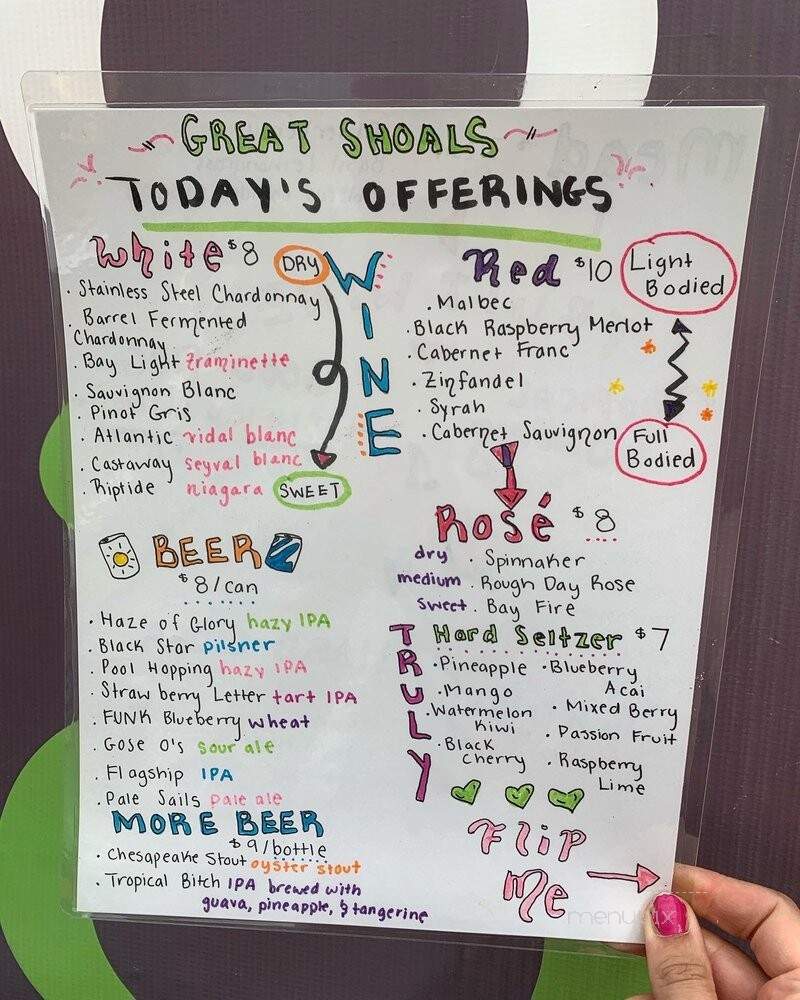 GREAT SHOALS
TODAY'S OFFERINGS
White $8
DRY
SWEET
WINE
· Stainless Steel Chardonnay
· Barrel Fermented
Chardonnay
· Bay Light Traminette
· Sauvignon Blanc
· Pinot Gris
· Atlantic vidal blanc
· Castaway seyval blanc
· Riptide niagara
Red $10
Light
Bodied
Full
Bodied
· Malbec
· Black Raspberry Merlot
· Cabernet Franc
· Zinfandel
· Syrah
· Cabernet Sauvignon
Rosé $8
dry · Spinnaker
medium · Rough Day Rose
sweet · Bay Fire
BEER
$8/can
· Haze of Glory hazy IPA
· Black Star pilsner
· Pool Hopping hazy IPA
· Strawberry Letter tart IPA
· FUNK Blueberry wheat
· Gose O's sour ale
· Flagship IPA
· Pale Sails pale ale
MORE BEER
$9/bottle
· Chesapeake Stout oyster stout
· Tropical Bitch IPA brewed with
guava, pineapple, & tangerine
TRULY
Hard Seltzer $7
· Pineapple
· Mango
· Watermelon
Kiwi
· Black
Cherry
· Blueberry
Acai
· Mixed Berry
· Passion Fruit
· Raspberry
Lime
Flip
Me
menupix